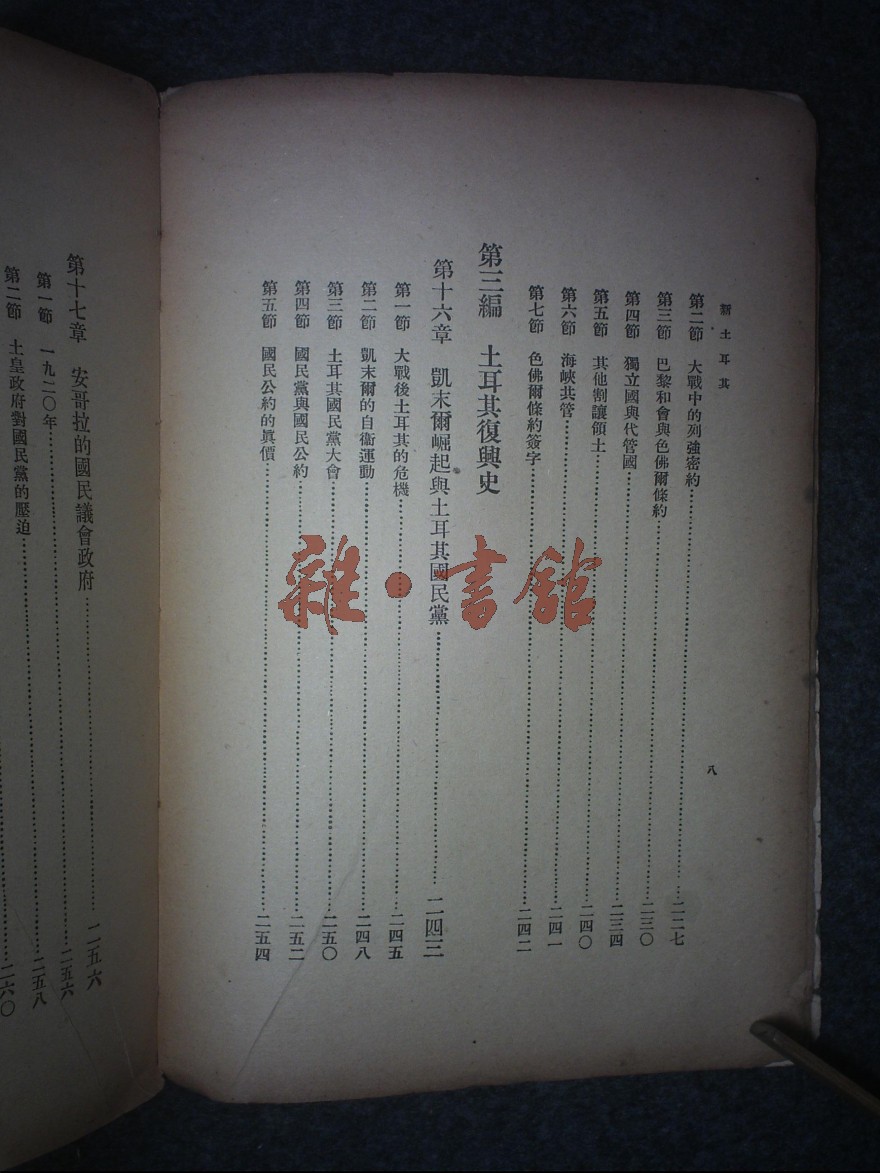 新土耳其
八
第二節　大戰中的列強密約……二二七
第三節　巴黎和會與色佛爾條約……二三〇
第四節　獨立國與代管國……二三四
第五節　其他割讓領土……二四〇
第六節　海峽共管……二四一
第七節　色佛爾條約簽字……二四二
第三編　土耳其復興史
第十六章　凱末爾崛起與土耳其國民黨……二四三
第一節　大戰後土耳其的危機……二四五
第二節　凱末爾的自衞運動……二四八
第三節　土耳其國民黨大會……二五〇
第四節　國民黨與國民公約……二五二
第五節　國民公約的眞價……二五四
第十七章　安哥拉的國民議會政府……二五六
第一節　一九二〇年……二五六
二五八
第二節　土皇政府對國民黨的壓迫……二六〇
雜·書館